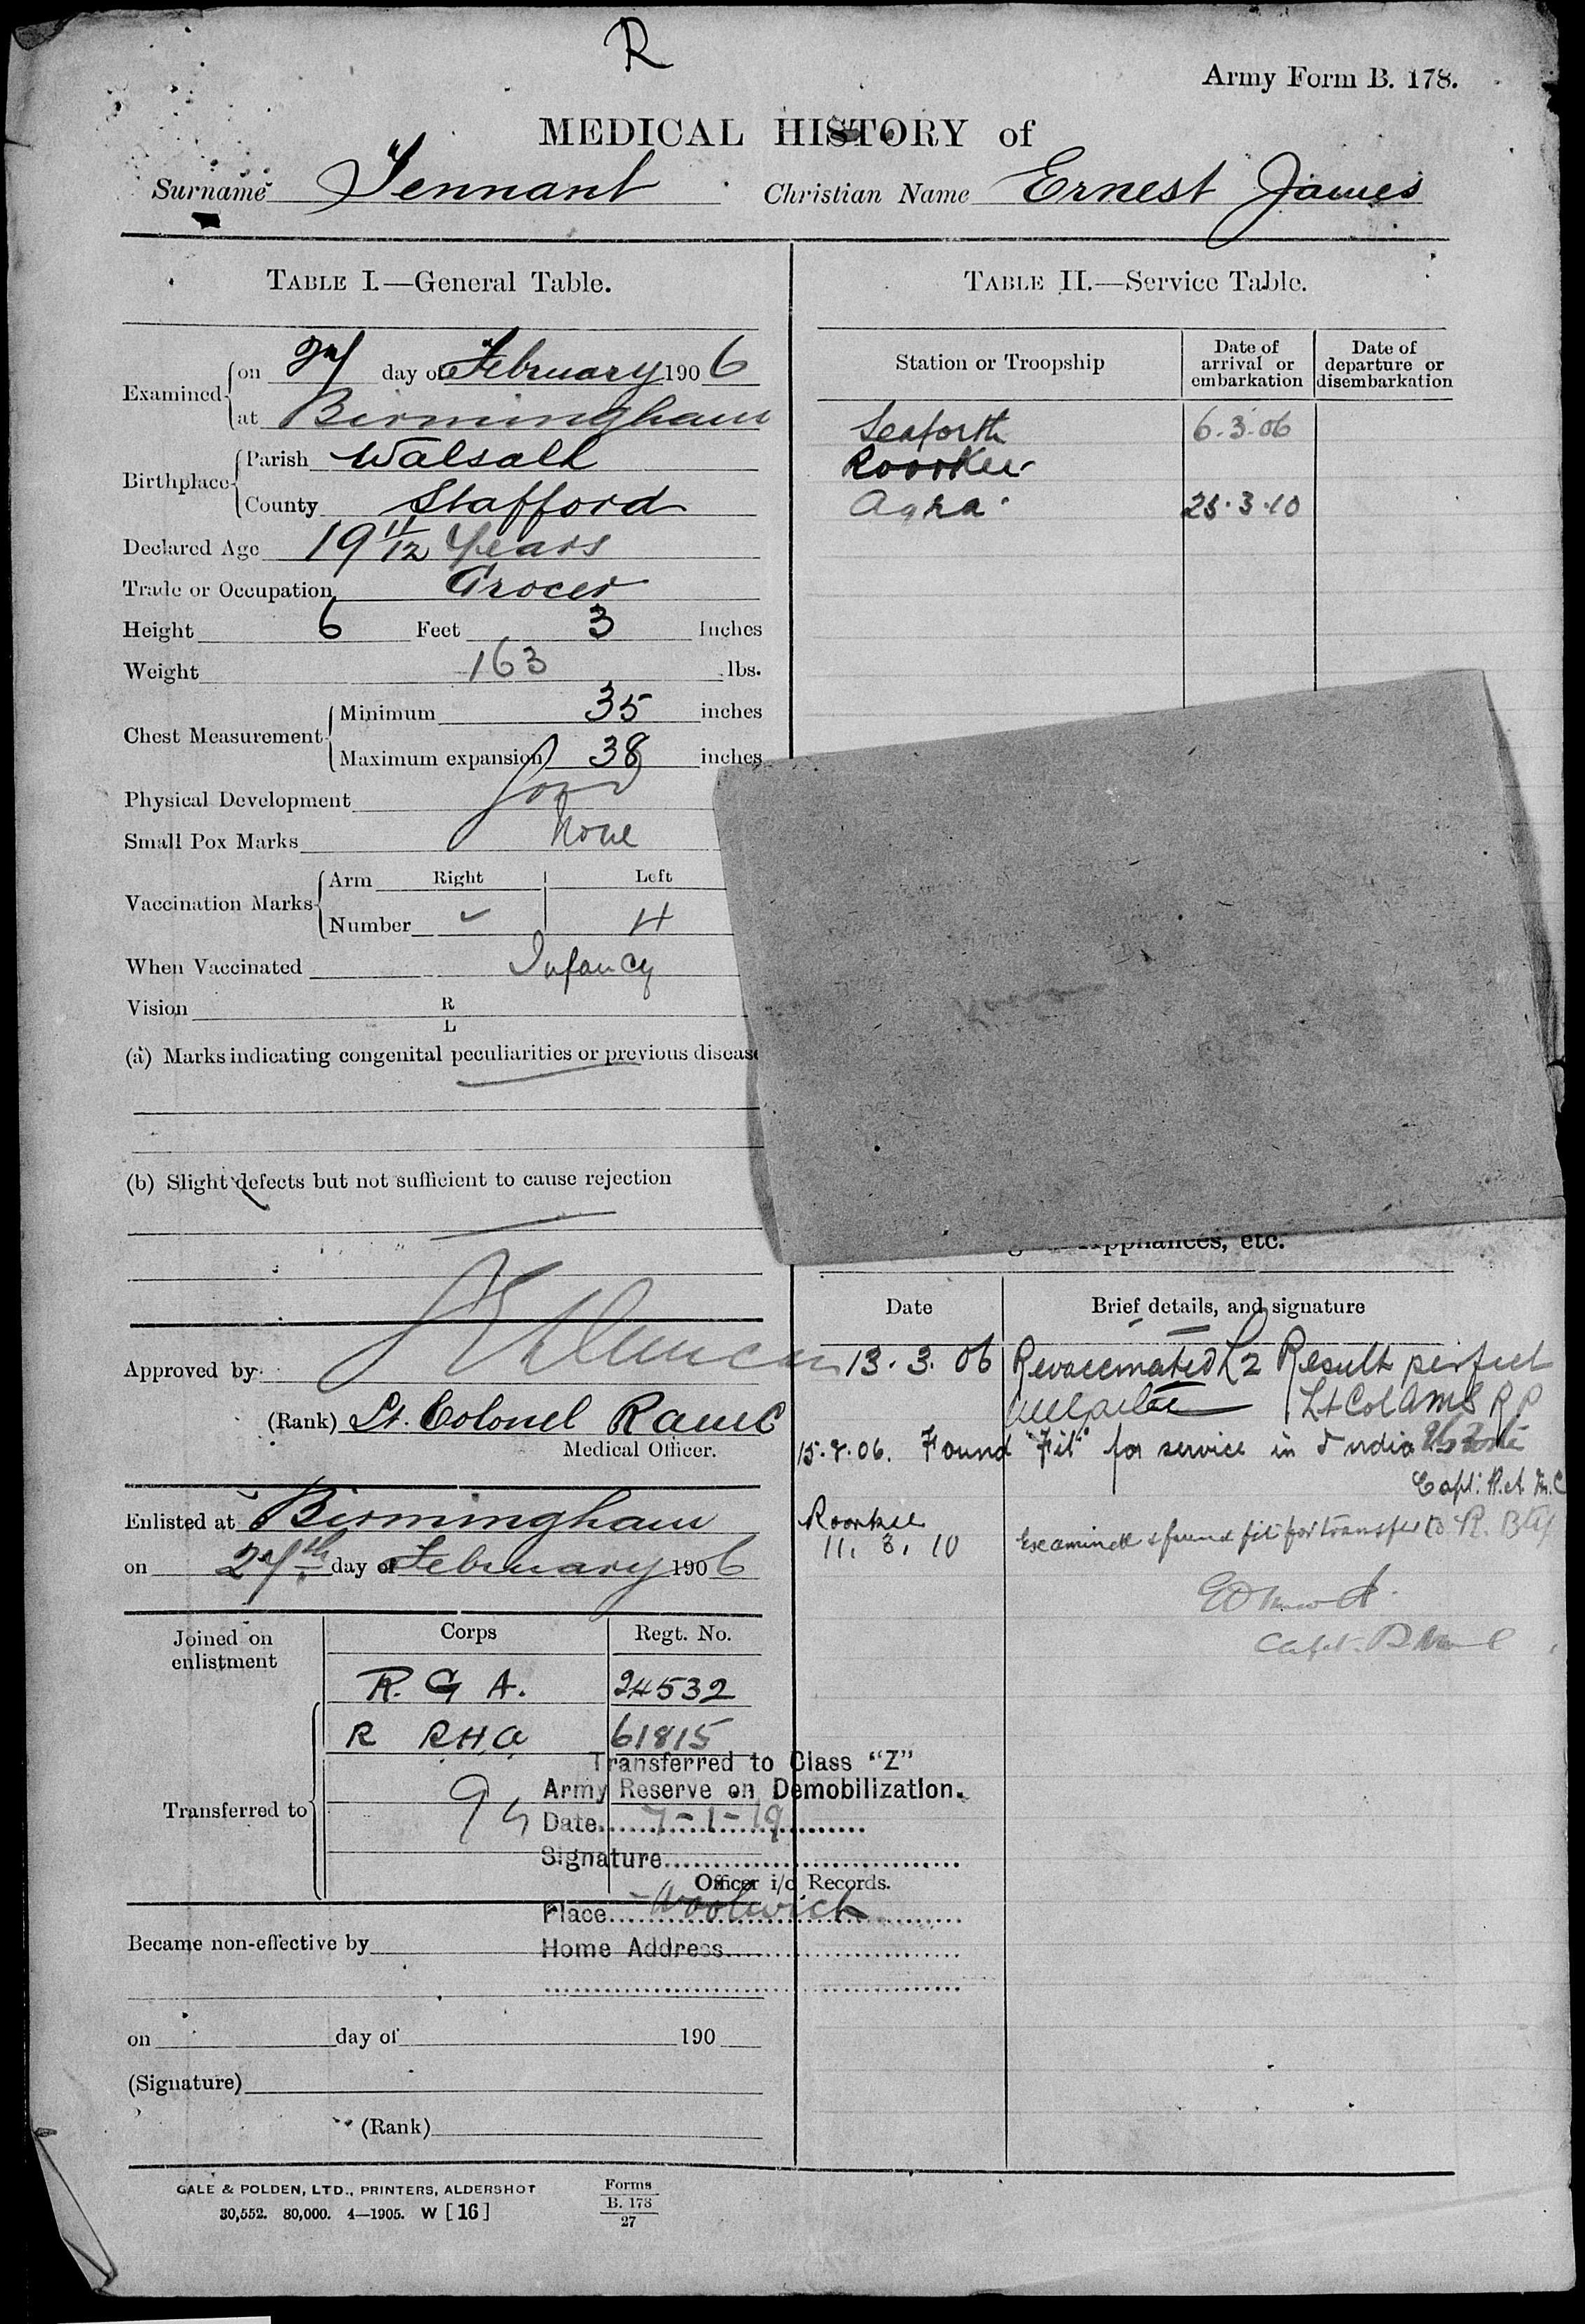 R
Army Form B. 178.
MEDICAL HISTORY of
Surname Tennant Christian Name Ernest James
TABLE I.—General Table.
Examined on 27 day of February 1906
at Birmingham
Birthplace Parish Walsall
County Stafford
Declared Age 19 11/12 Years
Trade or Occupation Grocer
Height 6 Feet 3 Inches
Weight 163 lbs.
Chest Measurement Minimum 35 inches
Maximum expansion 38 inches
Physical Development Good
Small Pox Marks None
Vaccination Marks Arm Right Left
Number 4
When Vaccinated Infancy
Vision R
L
(a) Marks indicating congenital peculiarities or previous disease
(b) Slight defects but not sufficient to cause rejection
Approved by
(Rank) Lt. Colonel RAMC
Medical Officer.
Enlisted at Birmingham
on 27th day of February 1906
Joined on enlistment Corps Regt. No.
R. G A. 24532
Transferred to R RHA 61815
Transferred to Class "Z"
Army Reserve on Demobilization.
Date 7-1-19
Signature
Officer i/c Records.
Place Woolwich
Home Address
Became non-effective by
on day of 190
(Signature)
(Rank)
GALE & POLDEN, LTD., PRINTERS, ALDERSHOT
30,552. 80,000. 4—1905. W [16]
Forms
B. 178
27
TABLE II.—Service Table.
Station or Troopship Date of arrival or embarkation Date of departure or disembarkation
Seaforth 6.3.06
Roorkee
Agra 25.3.10
Appliances, etc.
Date Brief details, and signature
13.3.06 Revaccinated L2 Result perfect
Lt Col AMS RP
15.7.06. Found "Fit" for service in India
Capt: R.A.M.C
Roorkee
11.3.10 Examined & found fit for transfer to R. Bty
Capt.